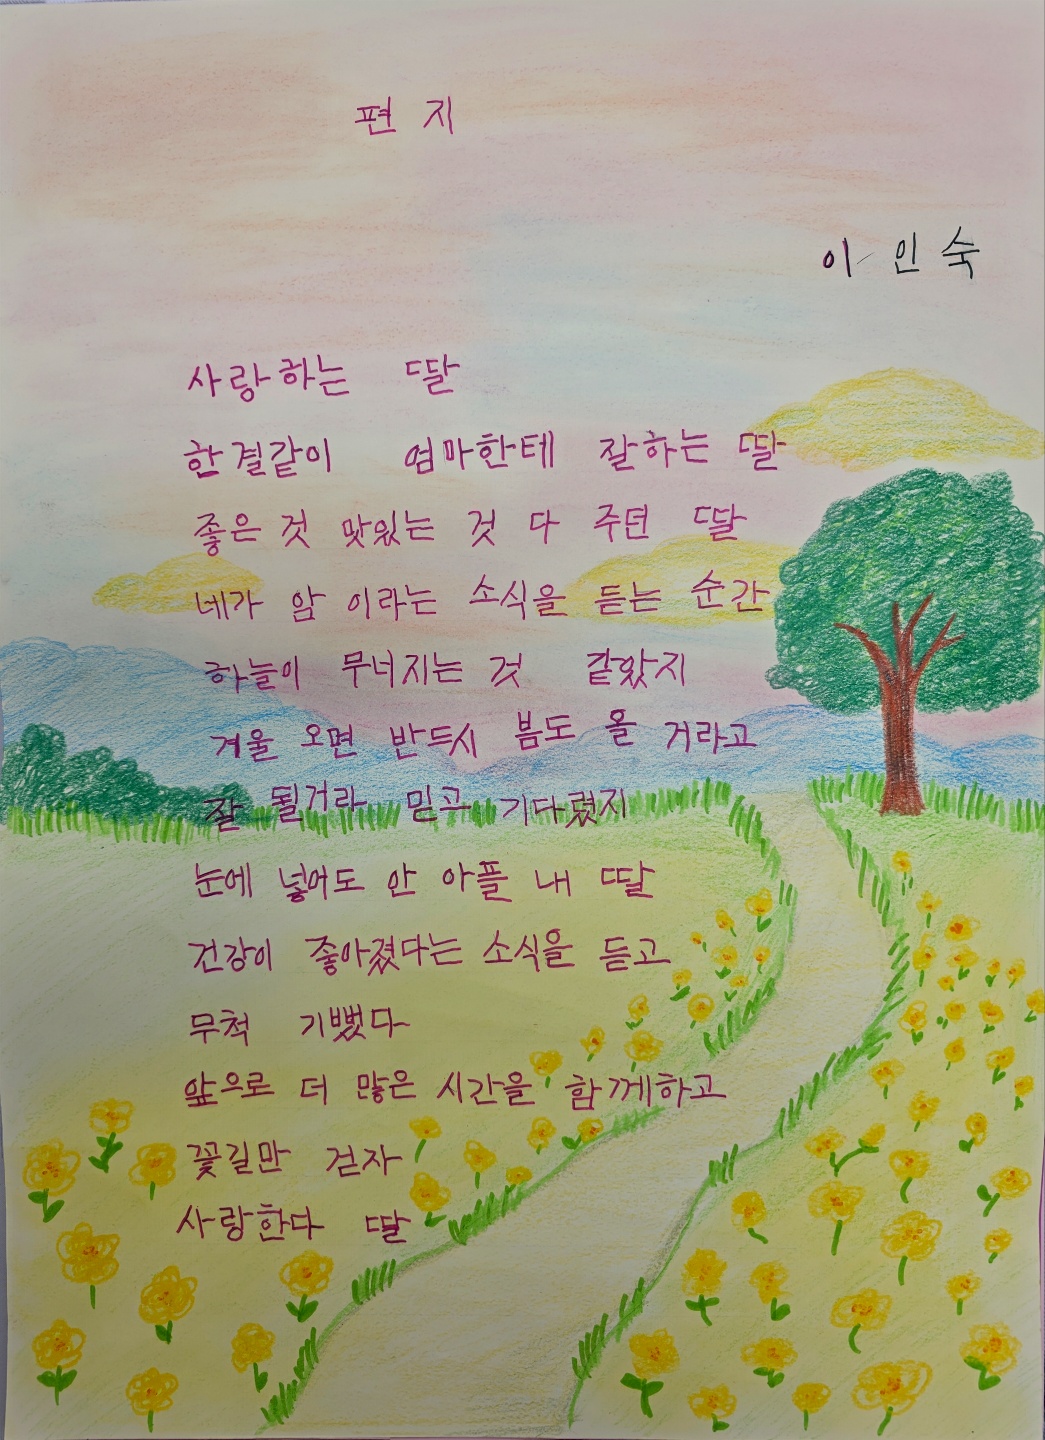 편지
이인숙
사랑하는 딸
한결같이 엄마한테 잘하는 딸
좋은 것 맛있는 것 다 주던 딸
네가 암 이라는 소식을 듣는 순간
하늘이 무너지는 것 같았지
겨울 오면 반드시 봄도 올 거라고
잘 될거라 믿고 기다렸지
눈에 넣어도 안 아플 내 딸
건강이 좋아졌다는 소식을 듣고
무척 기뻤다
앞으로 더 많은 시간을 함께하고
꽃길만 걷자
사랑한다 딸